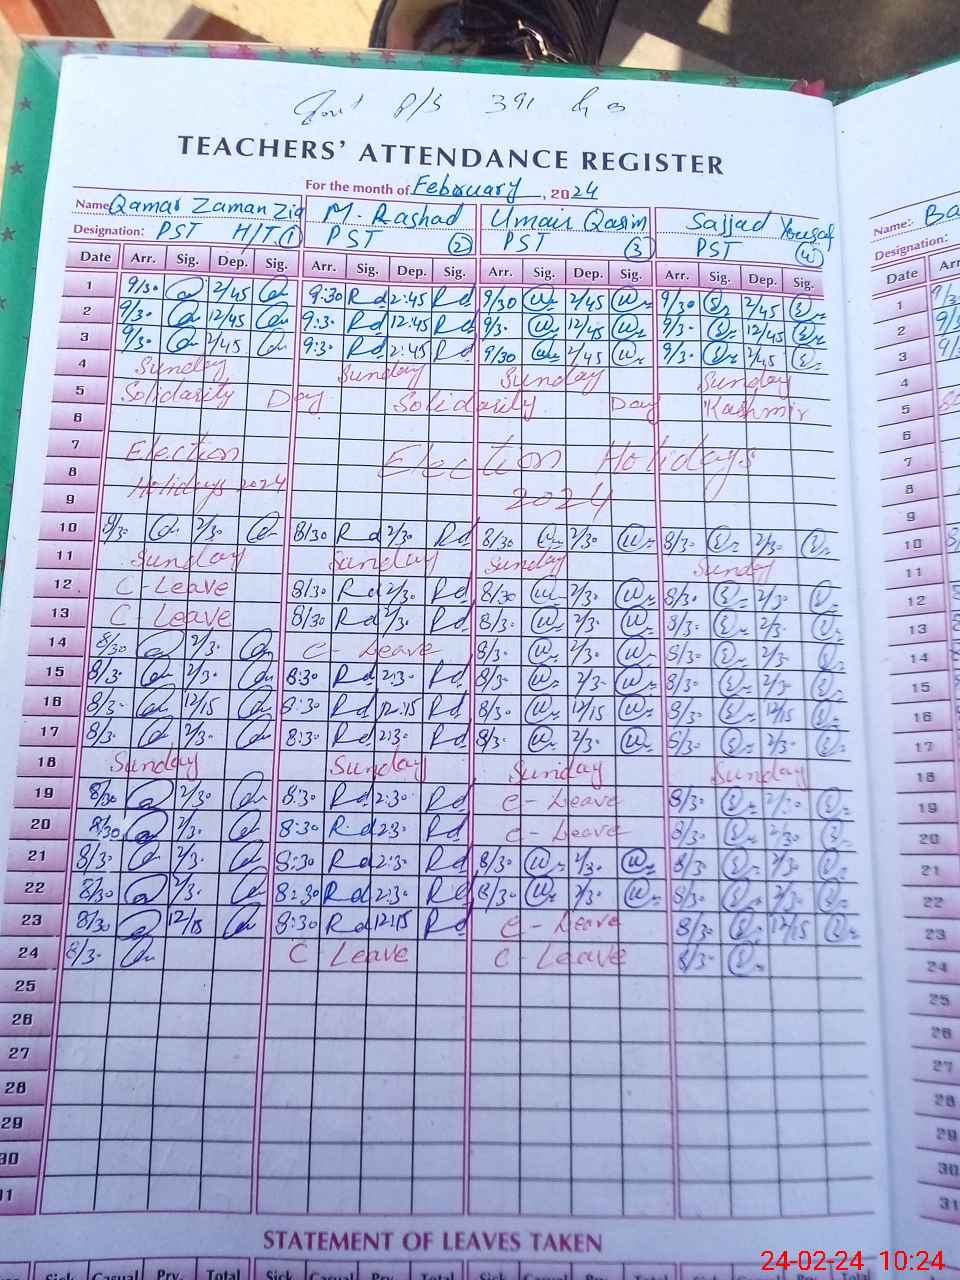 P/S 391
TEACHERS' ATTENDANCE REGISTER
For the month of February, 2024
Name Qamar Zaman Zia M. Rashad Umair Qasim Sajjad Yousaf
Designation: PST H/T ① PST ② PST ③ PST ④
Date Arr. Sig. Dep. Sig. Arr. Sig. Dep. Sig. Arr. Sig. Dep. Sig. Arr. Sig. Dep. Sig.
1 9/30 2/45 9:30 Rd 2:45 Rd 9/30 2/45 9/30 2/45
2 9/30 12/45 9:3. Rd 12:45 Rd 9/3. 12/45 9/3. 12/45
3 9/30 2/45 9:3. Rd 2:45 Rd 9/30 2/45 9/3. 2/45
4 Sunday Sunday Sunday Sunday
5 Solidarity Day Solidarity Day Kashmir
6
7 Election Election Holidays
8 Holidays 2024 2024
9
10 8/30 2/3. 8/30 Rd 2/3. Rd 8/30 2/30 8/3. 2/3.
11 Sunday Sunday Sunday Sunday
12 C-Leave 8/30 Rd 2/3. Rd 8/30 2/30 8/3. 2/3.
13 C-Leave 8/30 Rd 2/3. Rd 8/3. 2/3. 8/3. 2/3.
14 8/30 2/3. C-Leave 8/3. 2/30 8/3. 2/3.
15 8/3. 2/3. 8:30 Rd 2:3. Rd 8/3. 2/3. 8/3. 2/3.
16 8/3. 12/15 8:30 Rd 12:15 Rd 8/30 12/15 8/3. 12/15
17 8/3. 2/3. 8:3. Rd 2:3. Rd 8/3. 2/3. 8/3. 2/3.
18 Sunday Sunday Sunday Sunday
19 8/30 2/30 8:3. Rd 2:30 Rd C-Leave 8/3. 2/30
20 8/30 2/3. 8:30 Rd 2:3. Rd C-Leave 8/3. 2/30
21 8/3. 2/3. 8:30 Rd 2:3. Rd 8/30 2/30 8/3. 2/30
22 8/30 2/3. 8:30 Rd 2:3. Rd 8/30 2/30 8/3. 2/3.
23 8/30 12/15 8:30 Rd 12:15 Rd C-Leave 8/3. 12/15
24 8/3. C Leave C-Leave 8/3.
25
26
27
28
29
30
31
STATEMENT OF LEAVES TAKEN
Sick Casual Prv. Total Sick Casual Prv. Total Sick Casual Prv. Total
Name: Ba
Designation:
Date
1
2
3
4
5
6
7
8
9
10
11
12
13
14
15
16
17
18
19
20
21
22
23
24
25
26
27
28
29
30
31
24-02-24 10:24